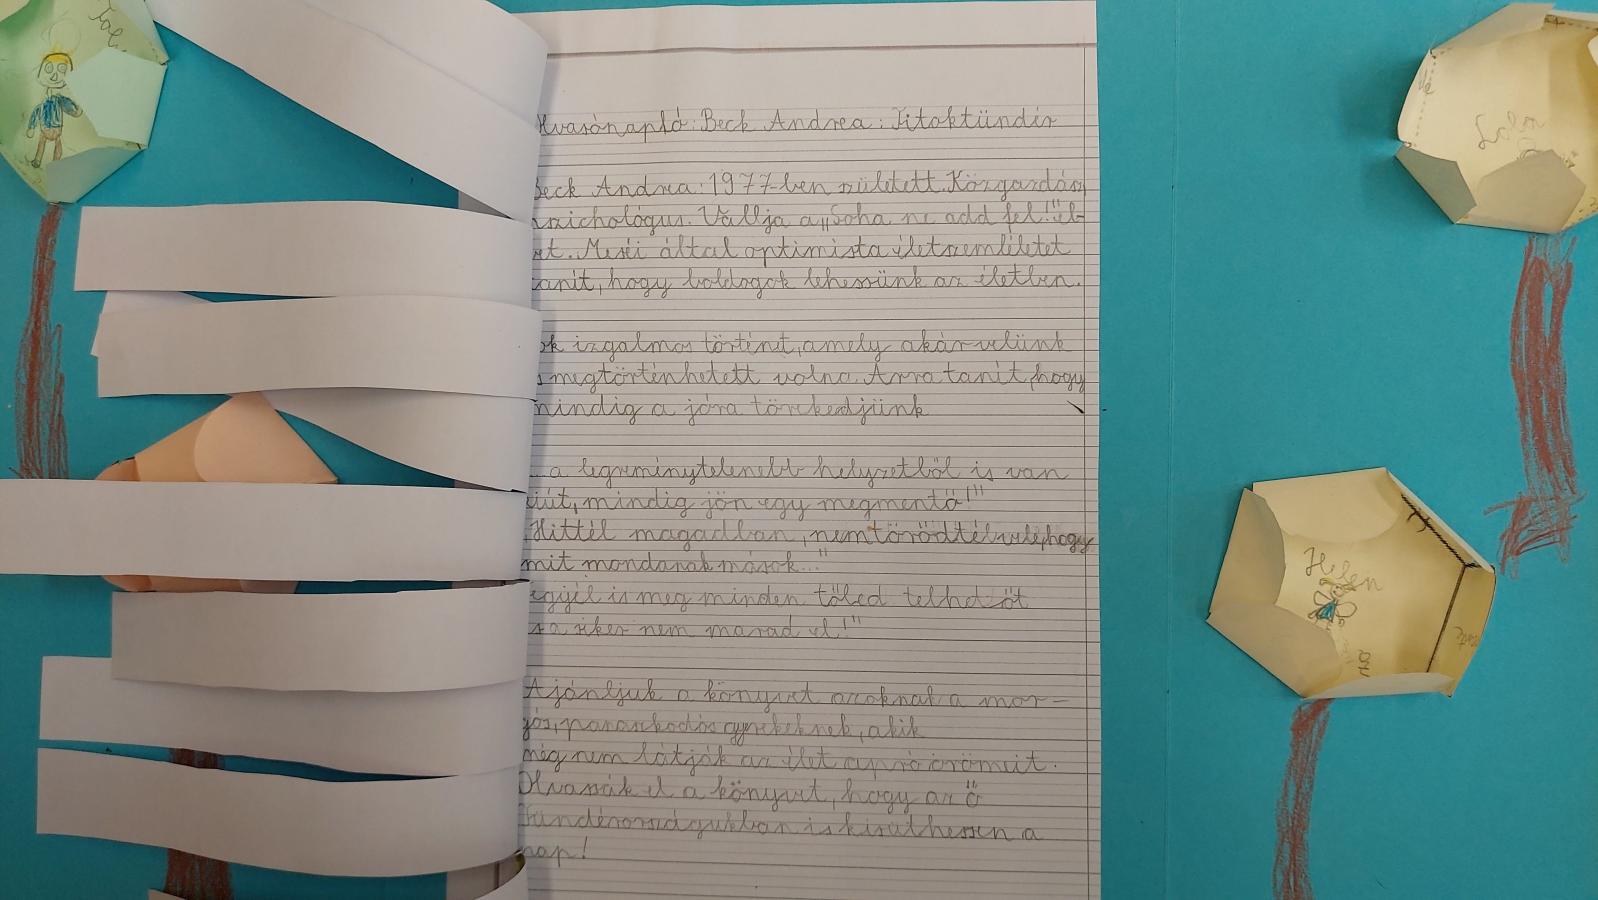 lvasónapló: Beck Andrea: Titoktündér
Beck Andrea: 1977-ben született. Közgazdász
szichológus. Vallja a „Soha ne add fel!" el-
vet. Meséi által optimista életszemléletet
tanít, hogy boldogok lehessünk az életben.
ok izgalmas történet, amely akár velünk
s megtörténhetett volna. Arra tanít, hogy
mindig a jóra törekedjünk
... a legreménytelenebb helyzetből is van
kiút, mindig jön egy megmentő!"
Hittél magadban, nem törődtél vele, hogy
mit mondanak mások..."
egyél is meg minden tőled telhetőt
s a siker nem marad el!"
Ajánljuk a könyvet azoknak a mor-
gós, panaszkodós gyerekeknek, akik
még nem látják az élet apró örömeit.
Olvassák el a könyvet, hogy az ő
Tündérországukban is kisüthessen a
nap!
Lola
Helén